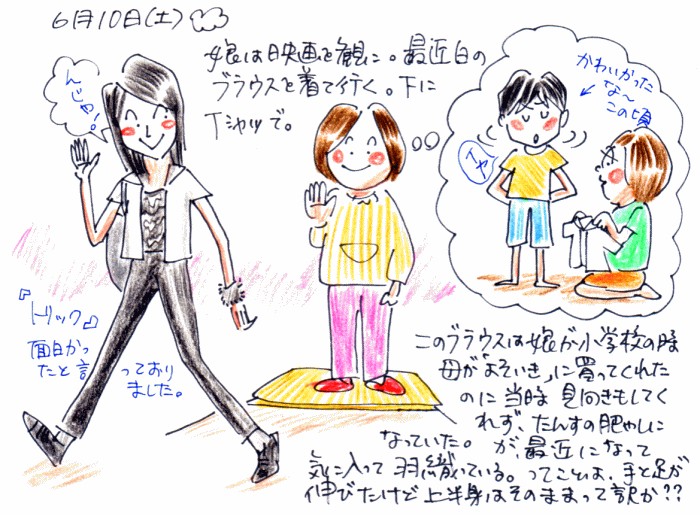 6月10日(土)
娘は映画を観に。最近白の
ブラウスを着て行く。下に
Tシャツで。
んじゃ!
かわいかった
な〜
この頃
イヤ
『トリック』
面白かっ
たと言っており
ました。
このブラウスは娘が小学校の時
母が「よそいき」に買ってくれた
のに当時見向きもしてく
れず、たんすの肥やしに
なっていた。が、最近になって
気に入って羽織っている。ってことは、手と足が
伸びたけど上半身はそのままって訳か??